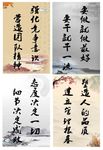 强化竞争意识
营造团队精神
要做就做最好
要干就干一流
态度决定一切
细节决定成败
建立信心的根基
塑造人的品质